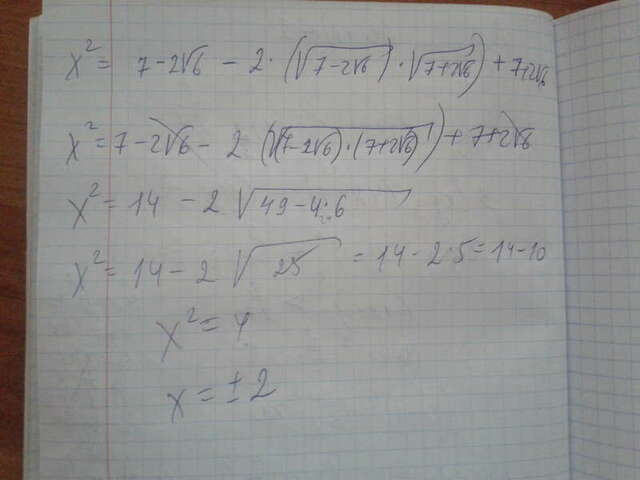 x² = 7 - 2√6 - 2·(√7-2√6 · √7+2√6) + 7+2√6
x² = 7 - 2√6 - 2 (√(7-2√6)·(7+2√6)) + 7+2√6
x² = 14 - 2 √49-4·6
x² = 14 - 2 √25 = 14 - 2·5 = 14-10
x² = 4
x = ±2